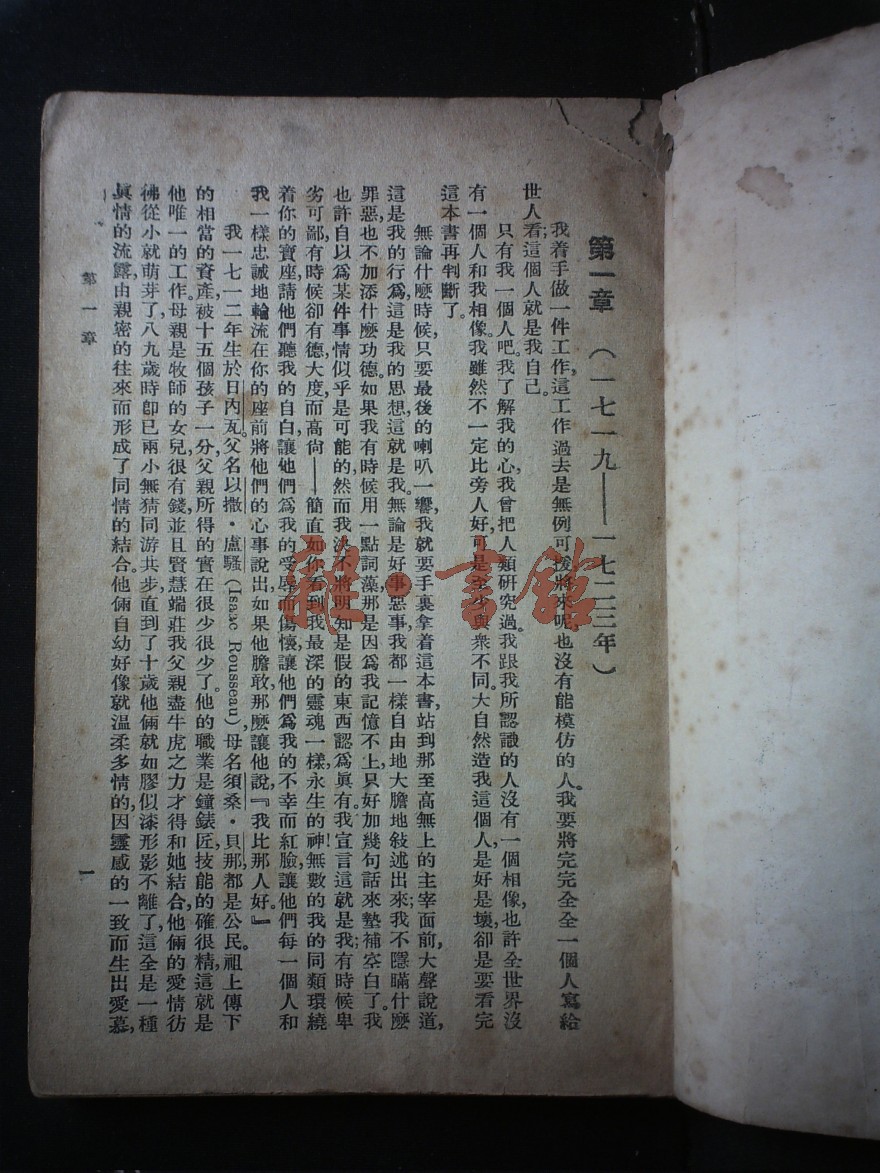 第一章　（一七一九——一七二三年）
我着手做一件工作，這工作過去是無例可援，將來呢也沒有能模仿的人。我要將完完全全一個人寫給
世人看；這個人就是我自己。
只有我一個人吧。我了解我的心，我曾把人類研究過。我跟我所認識的人沒有一個相像，也許全世界沒
有一個人和我相像。我雖然不一定比旁人好，可是至少與衆不同。大自然造我這個人，是好是壞，卻是要看完
這本書再判斷了。
無論什麽時候，只要最後的喇叭一響，我就要手裏拿着這本書，站到那至高無上的主宰面前，大聲說道，
這是我的行爲，這是我的思想，這就是我。無論是好事惡事，我都一樣自由地大膽地敍述出來；我不隱瞞什麽
罪惡，也不加添什麽功德。如果我有時候用一點詞藻，那是因爲我記憶不上，只好加幾句話來墊補空白了。我
也許自以爲某件事情似乎是可能的，然而我決不將明知是假的東西認爲眞有。我宣言這就是我；有時候卑
劣可鄙，有時候卻有德大度而高尙——簡直如你看到我最深的靈魂一樣，永生的神！無數的我的同類環繞
着你的寶座，請他們聽我的自白，讓他們爲我的受辱而傷懷，讓他們爲我的不幸而紅臉，讓他們每一個人和
我一樣忠誠地輪流在你的座前將他們的心事說出，如果他膽敢那麽讓他說『我比那人好。』
我一七一二年生於日內瓦。父名以撒·盧騷（Isaac Rousseau），母名須桑·貝那，都是公民。祖上傳下
的相當的資產，被十五個孩子一分，父親所得的實在很少很少了。他的職業是鐘錶匠，技能的確很精，這就是
他唯一的工作。母親是牧師的女兒，很有錢，並且賢慧端莊，我父親盡牛虎之力才得和她結合，他倆的愛情彷
彿從小就萌芽了，八九歲時卽已兩小無猜同游共步，直到了十歲他倆就如膠似漆形影不離了，這全是一種
眞情的流露，由親密的往來而形成了同情的結合。他倆自幼好像就温柔多情的，因靈感的一致而生出愛慕，
第一章
一
雜·書館